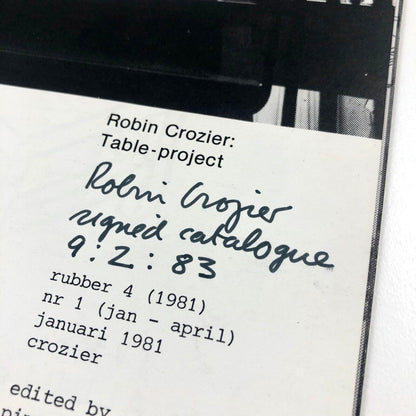 Robin Crozier:
Table-project
Robin Crozier
signed catalogue
9:2:83
rubber 4 (1981)
nr 1 (jan - april)
januari 1981
crozier
edited by